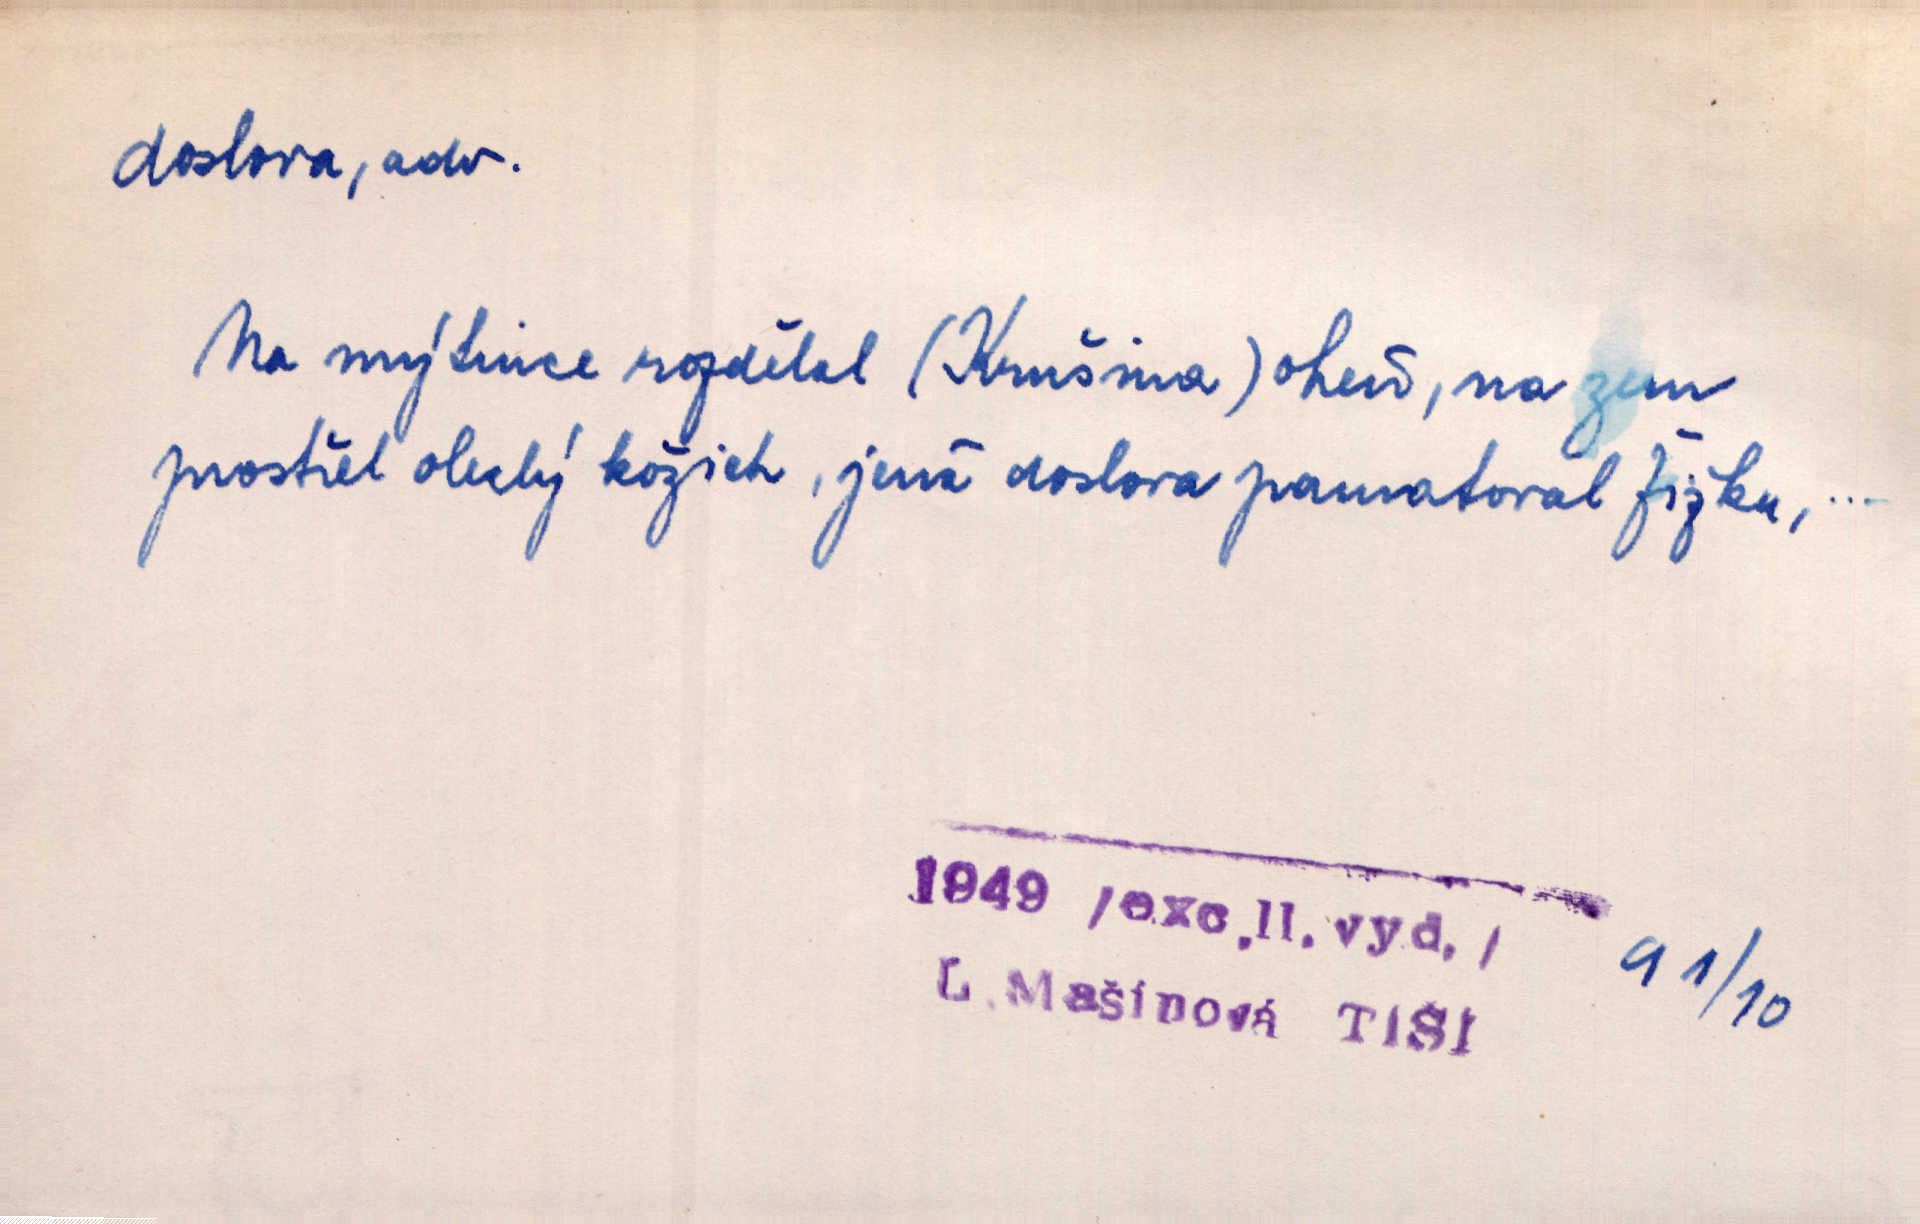 doslova, adv.
Na mýtince rozdělal (Krušina) oheň, na zem
prostřel olezlý kožich, jenž doslova pamatoval Žižku, ...
1949 /exc.II. vyd./
L. Mašínová TIŠI
91/10